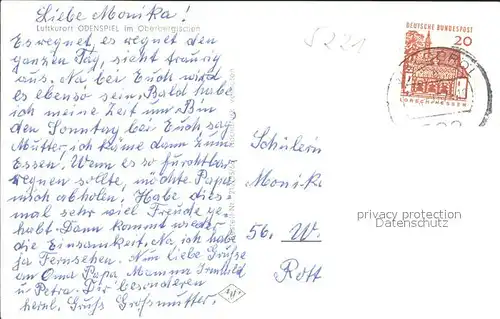 Liebe Monika!
Luftkurort ODENSPIEL im Oberbergischen
Es regnet, es regnet den
ganzen Tag, sieht traurig
aus. Na bei Euch wird
es ebenso sein. Bald habe
ich meine Zeit um. Bin
den Sonntag bei Euch, sag
Mutter, ich käme dann zum
Essen! Wenn es so furchtbar
regnen sollte, möchte Papa
mich abholen. Habe dies
mal sehr viel Freude ge
habt. Dann kommt wieder
die Einsamkeit. Na, ich habe
ja Fernsehen. Nun liebe Grüße
an Oma Papa Mamma
u Petra. Dir besonderen
herzl. Gruß Großmutter.
5221
DEUTSCHE BUNDESPOST
20
LORSCH/HESSEN
Schülerin
Monika
privacy protection
Datenschutz
56. W.
Rott